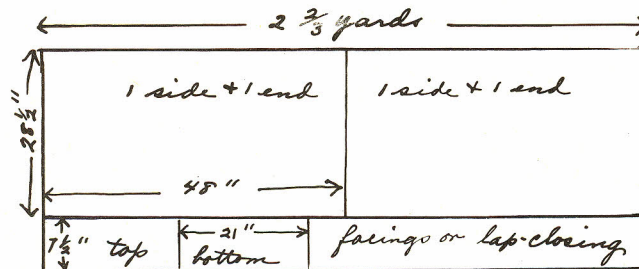 2 2/3 yards
1 side + 1 end 1 side + 1 end
28 1/2"
48"
7 1/2" top 21" bottom facings or lap-closing